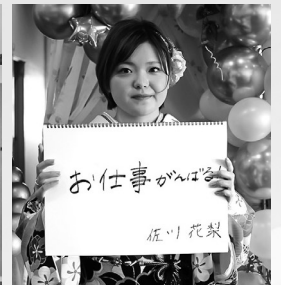 お仕事がんばる!
佐川 花梨